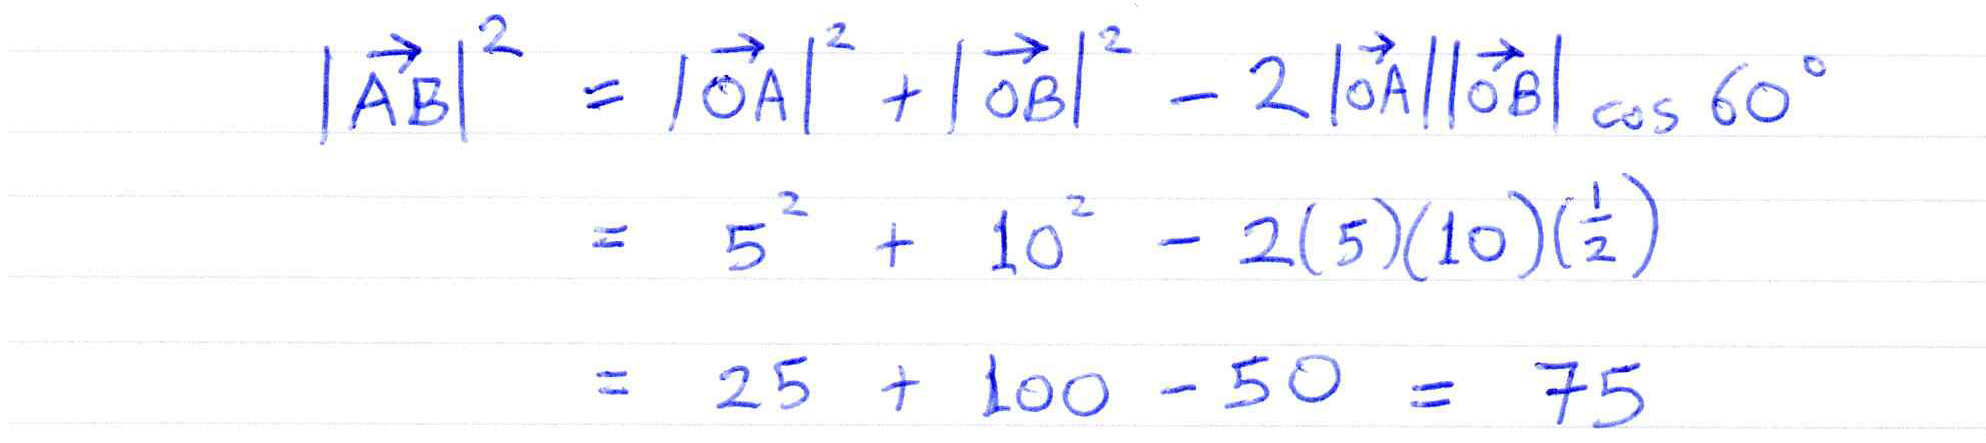 |\overrightarrow{AB}|² = |\overrightarrow{OA}|² + |\overrightarrow{OB}|² - 2|\overrightarrow{OA}||\overrightarrow{OB}| cos 60°
= 5² + 10² - 2(5)(10)(\frac{1}{2})
= 25 + 100 - 50 = 75